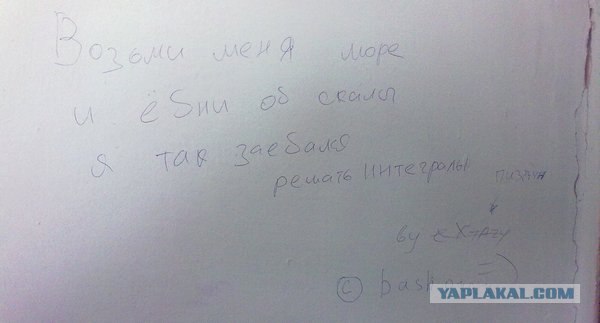 Возьми меня море
и ёбни об скалы
я так заебался
решать интегралы
by
©
YAPLAKAL.COM